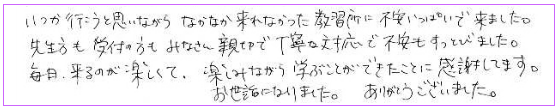 いつか行こうと思いながら なかなか来れなかった教習所に不安いっぱいで来ました。
先生方も受付の方もみなさん親切で丁寧な対応で不安もすっとびました。
毎日、来るのが楽しくて、楽しみながら学ぶことができたことに感謝してます。
お世話になりました。 ありがとうございました。